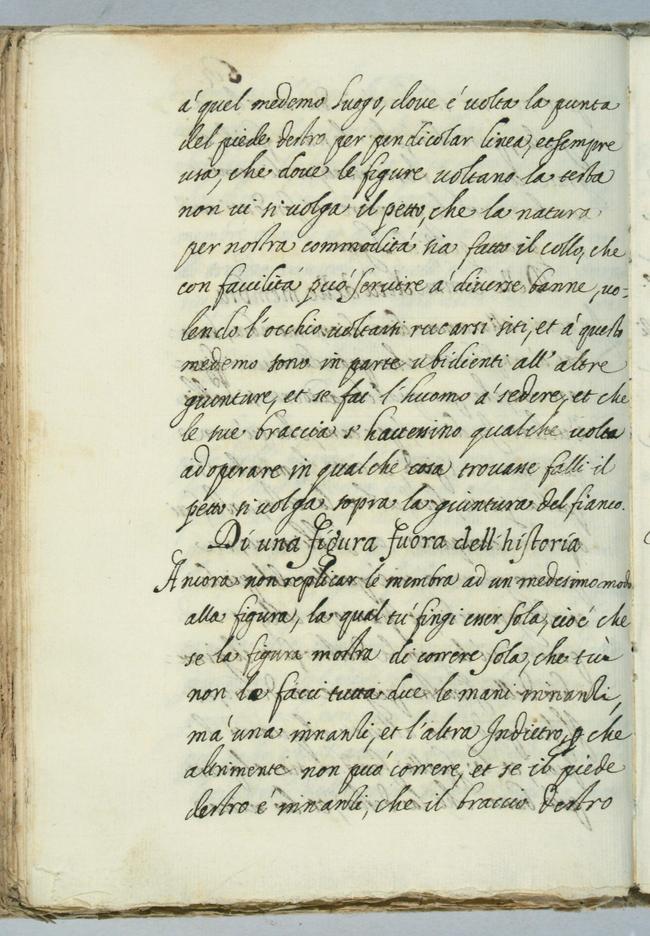 á quel medemo luogo, dove é volta la punta
del piede destro per pendicolar linea, et sempre
usa, che dove le figure voltano la testa
non vi si volga il petto, che la natura
per nostra commoditá sia fatto il collo, che
con facilitá può servire a diverse banne, vo-
lendo l'occhio voltarsi recarsi siti, et á questo
medemo sono in parte ubidienti all' altre
giunture, et se fai l'huomo á sedere, et che
le sue braccia s'havessino qualche volta
adoperare in qualche cosa trovasse falli il
petto si volga sopra la giuntura del fianco.
Di una figura fuora dell'historia
Ancora non replicar le membra ad un medesimo modo
alla figura, la qual tú fingi esser sola, cioé che
se la figura mostra di correre sola, che tú
non le facci tutta due le mani innanti,
má una innanti, et l'altra Indietro, p che
altrimente non puó correre, et se il piede
destro é innanti, che il braccio destro